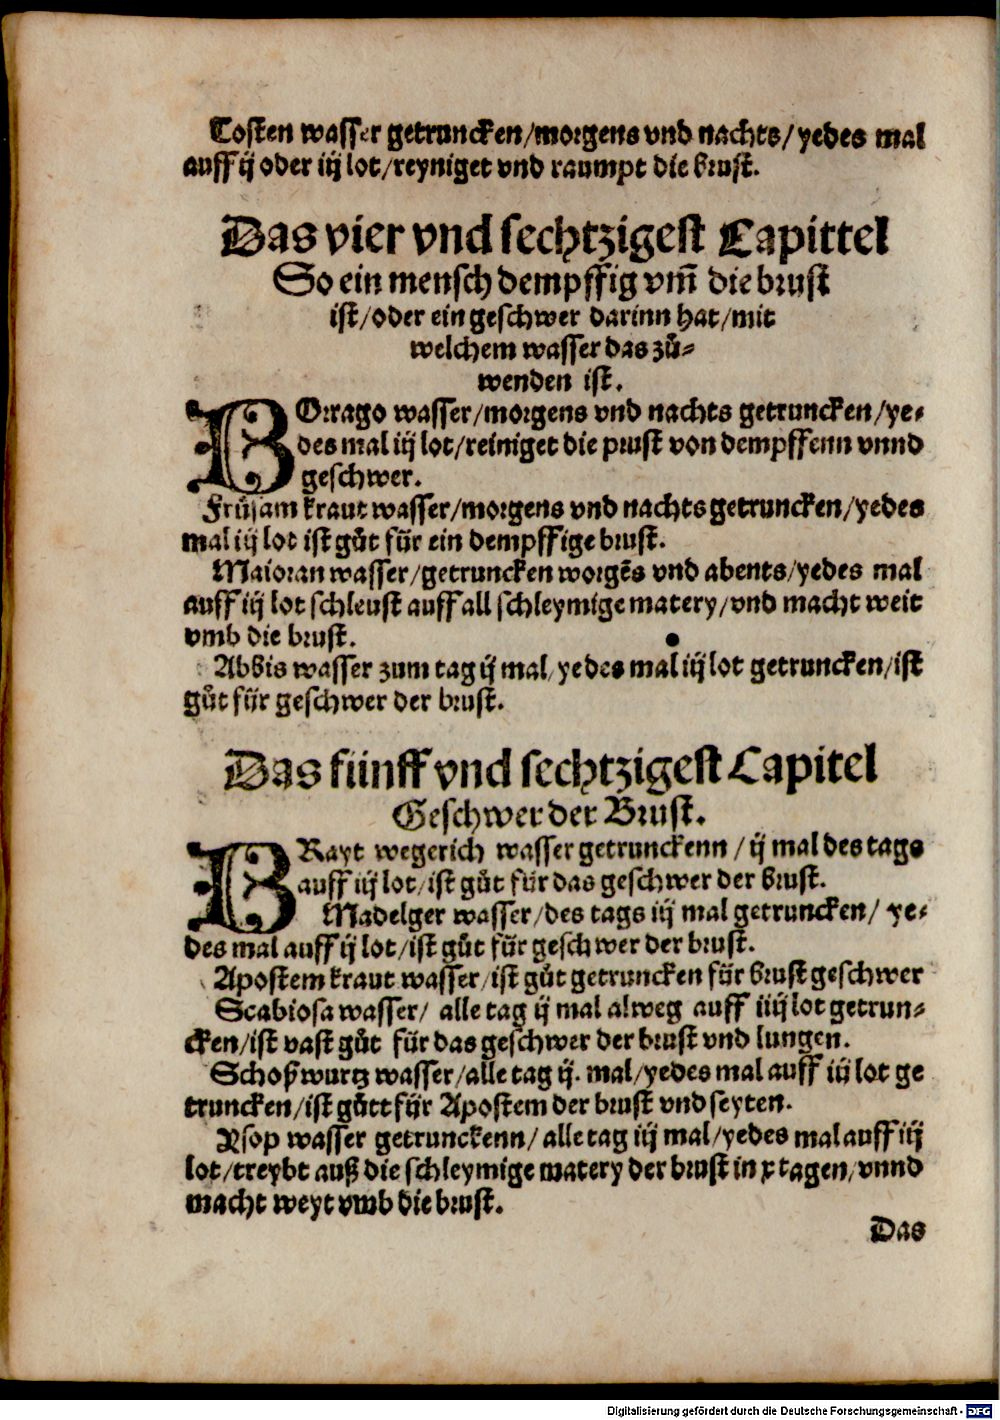 Tosten wasser getruncken/morgens vnd nachts/ yedes mal
auff ij oder iij lot/reyniget vnd raumpt die brust.
Das vier vnd sechtzigest Capittel
So ein mensch dempffig vm̃ die brust
ist/oder ein geschwer darinn hat/mit
welchem wasser das zů-
wenden ist.
BOrrago wasser/morgens vnd nachts getruncken/ye-
des mal iij lot/reiniget die prust von dempffenn vnnd
geschwer.
Frůsam kraut wasser/morgens vnd nachts getruncken/yedes
mal iij lot ist gůt für ein dempffige brust.
Maioran wasser/getruncken worgẽs vnd abents/yedes mal
auff iij lot schleust auff all schleymige matery/vnd macht weit
vmb die brust.
Abbis wasser zum tag ij mal/yedes mal iij lot getruncken/ist
gůt für geschwer der brust.
Das fünff vnd sechtzigest Capitel
Geschwer der Brust.
BRayt wegerich wasser getrunckenn/ij mal des tags
auff iij lot/ist gůt für das geschwer der brust.
Madelger wasser/des tags iij mal getruncken/ ye-
des mal auff ij lot/ist gůt für geschwer der brust.
Apostem kraut wasser/ist gůt getruncken für brust geschwer
Scabiosa wasser/ alle tag ij mal alweg auff iiij lot getrun-
cken/ist vast gůt für das geschwer der brust vnd lungen.
Schoßwurtz wasser/alle tag ij. mal/yedes mal auff iij lot ge
truncken/ist gůtt für Apostem der brust vnd seyten.
Ysop wasser getrunckenn/ alle tag iij mal/yedes mal auff iij
lot/treybt auß die schleymige matery der brust in x tagen/vnnd
macht weyt vmb die brust.
Das
Digitalisierung gefördert durch die Deutsche Forschungsgemeinschaft - DFG